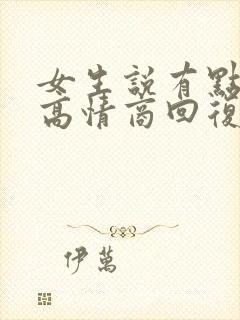 女生說有點
高情商回復
伊萬